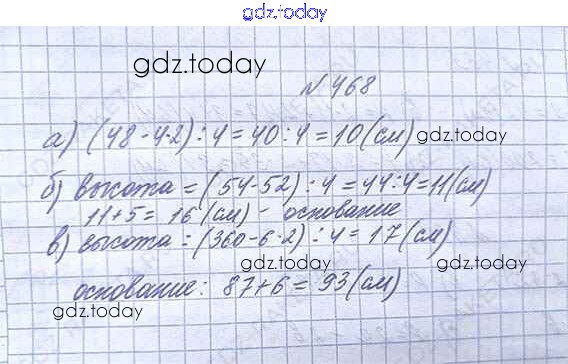 gdz.today
gdz.today
№ 468
а) (48-4·2):4=40:4=10(см) gdz.today
б) высота = (54-52):4=44:4=11(см)
11+5= 16(см) - основание
в) высота = (360-6·2):4=17(см)
gdz.today gdz.today
основание: 87+6= 93(см)
gdz.today